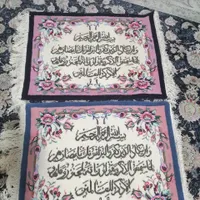 بسم الله الرحمن الرحيم
وان يكاد الذين كفروا ليزلقونك بابصارهم
لما سمعوا الذكر ويقولون انه لمجنون وما هو
الا ذكر للعالمين
بسم الله الرحمن الرحيم
وان يكاد الذين كفروا ليزلقونك بابصارهم
لما سمعوا الذكر ويقولون انه لمجنون وما هو
الا ذكر للعالمين